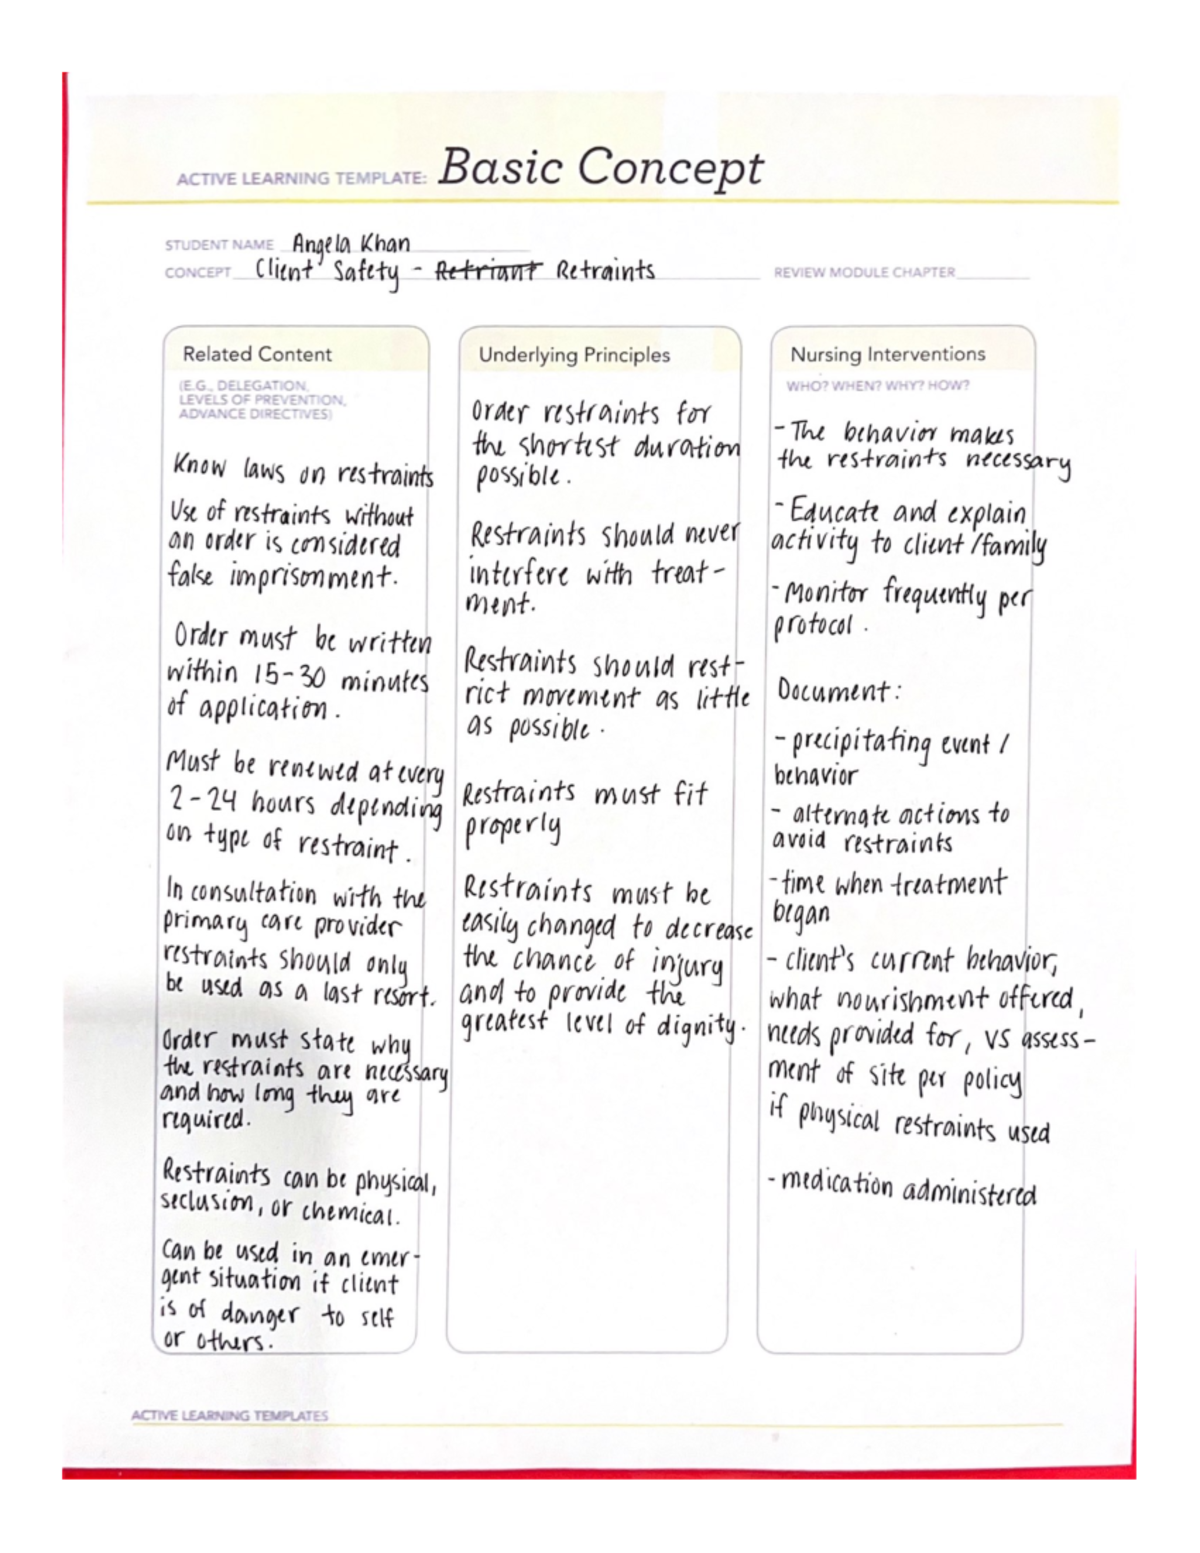 ACTIVE LEARNING TEMPLATE: Basic Concept
STUDENT NAME Angela Khan
CONCEPT Client Safety - Retriant Retraints REVIEW MODULE CHAPTER
Related Content
(E.G., DELEGATION,
LEVELS OF PREVENTION,
ADVANCE DIRECTIVES)
Know laws on restraints
Use of restraints without
an order is considered
false imprisonment.
Order must be written
within 15-30 minutes
of application.
Must be renewed at every
2-24 hours depending
on type of restraint.
In consultation with the
primary care provider
restraints should only
be used as a last resort.
Order must state why
the restraints are necessary
and how long they are
required.
Restraints can be physical,
seclusion, or chemical.
Can be used in an emer-
gent situation if client
is of danger to self
or others.
Underlying Principles
Order restraints for
the shortest duration
possible.
Restraints should never
interfere with treat-
ment.
Restraints should rest-
rict movement as little
as possible.
Restraints must fit
properly
Restraints must be
easily changed to decrease
the chance of injury
and to provide the
greatest level of dignity.
Nursing Interventions
WHO? WHEN? WHY? HOW?
- The behavior makes
the restraints necessary
- Educate and explain
activity to client/family
- Monitor frequently per
protocol.
Document:
- precipitating event /
behavior
- alternate actions to
avoid restraints
- time when treatment
began
- client's current behavior,
what nourishment offered,
needs provided for, VS assess-
ment of site per policy
if physical restraints used
- medication administered
ACTIVE LEARNING TEMPLATES